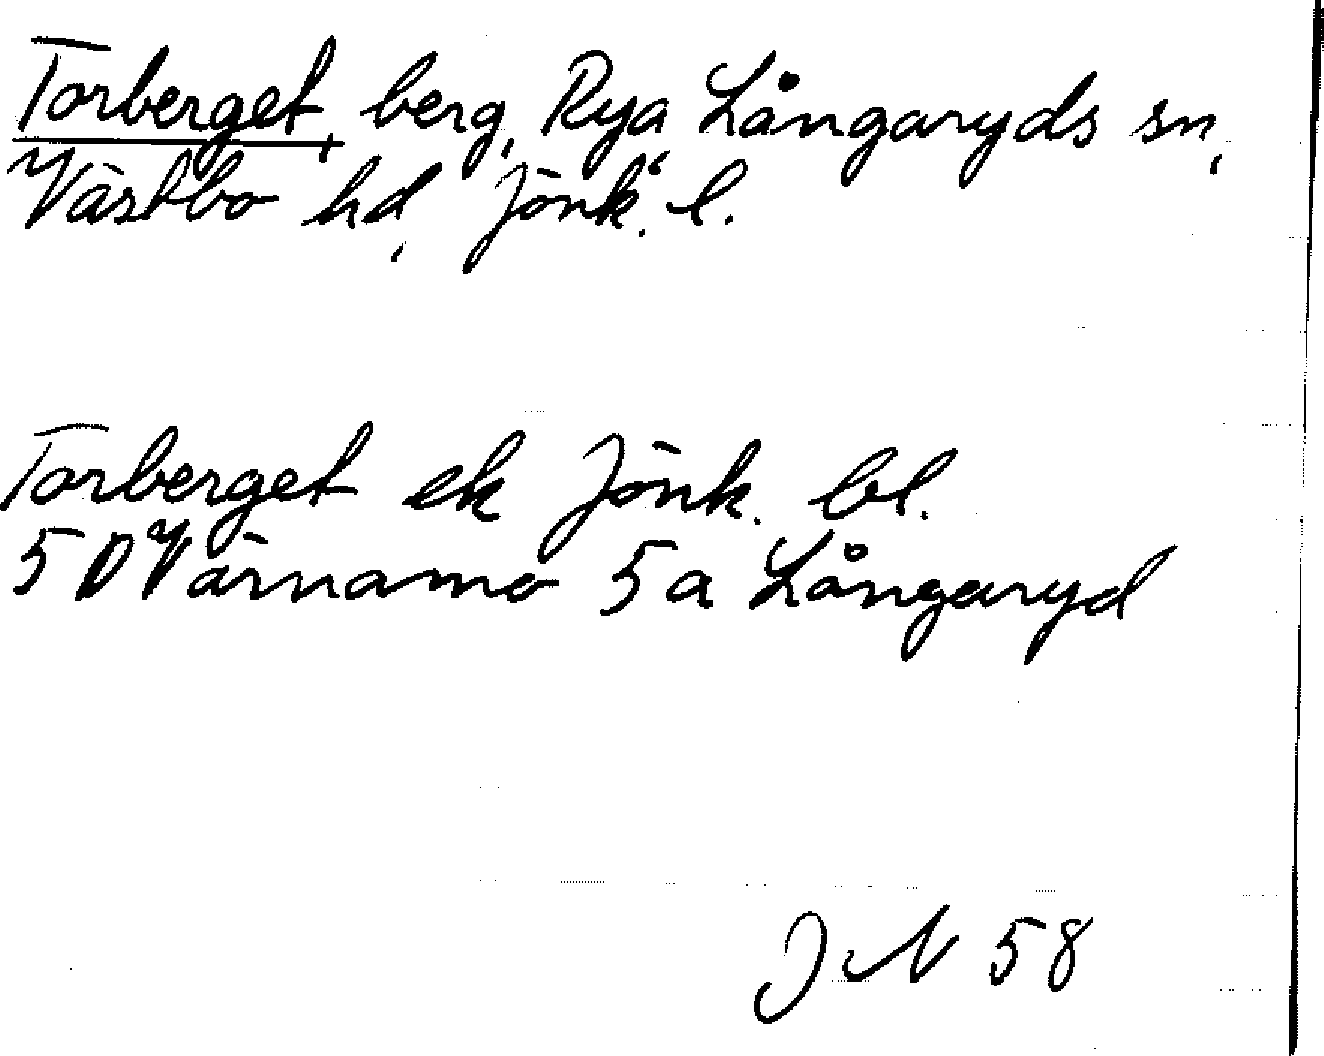 Torberget, berg, Rya, Långaryds sn,
Västbo hd, Jönk. l.
Torberget ek Jönk. bl.
5 D Värnamo 5a Långaryd
J N 58